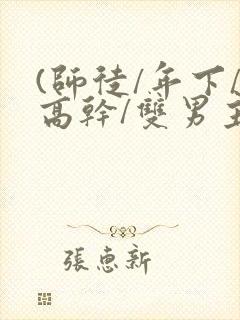 (師徒/年下/
高幹/雙男主
張惠新